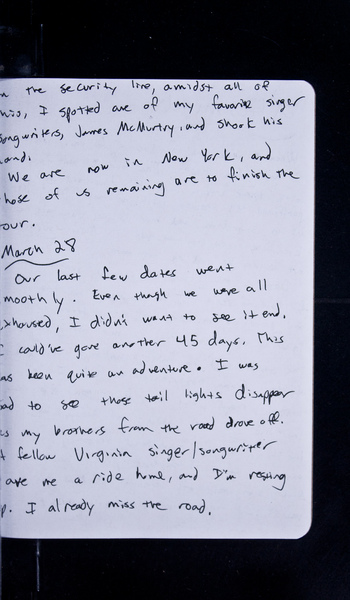 n the security line, amidst all of
his, I spotted one of my favorite singer
songwriters, James McMurtry, and shook his
hand.
We are now in New York, and
hose of us remaining are to finish the
our.
March 28
Our last few dates went
moothly. Even though we were all
exhaused, I didn't want to see it end.
I could've gone another 45 days. This
as been quite an adventure. I was
ad to see those tail lights disappear
as my brothers from the road drove off.
A fellow Virginia singer/songwriter
gave me a ride home, and I'm resting
p. I already miss the road.